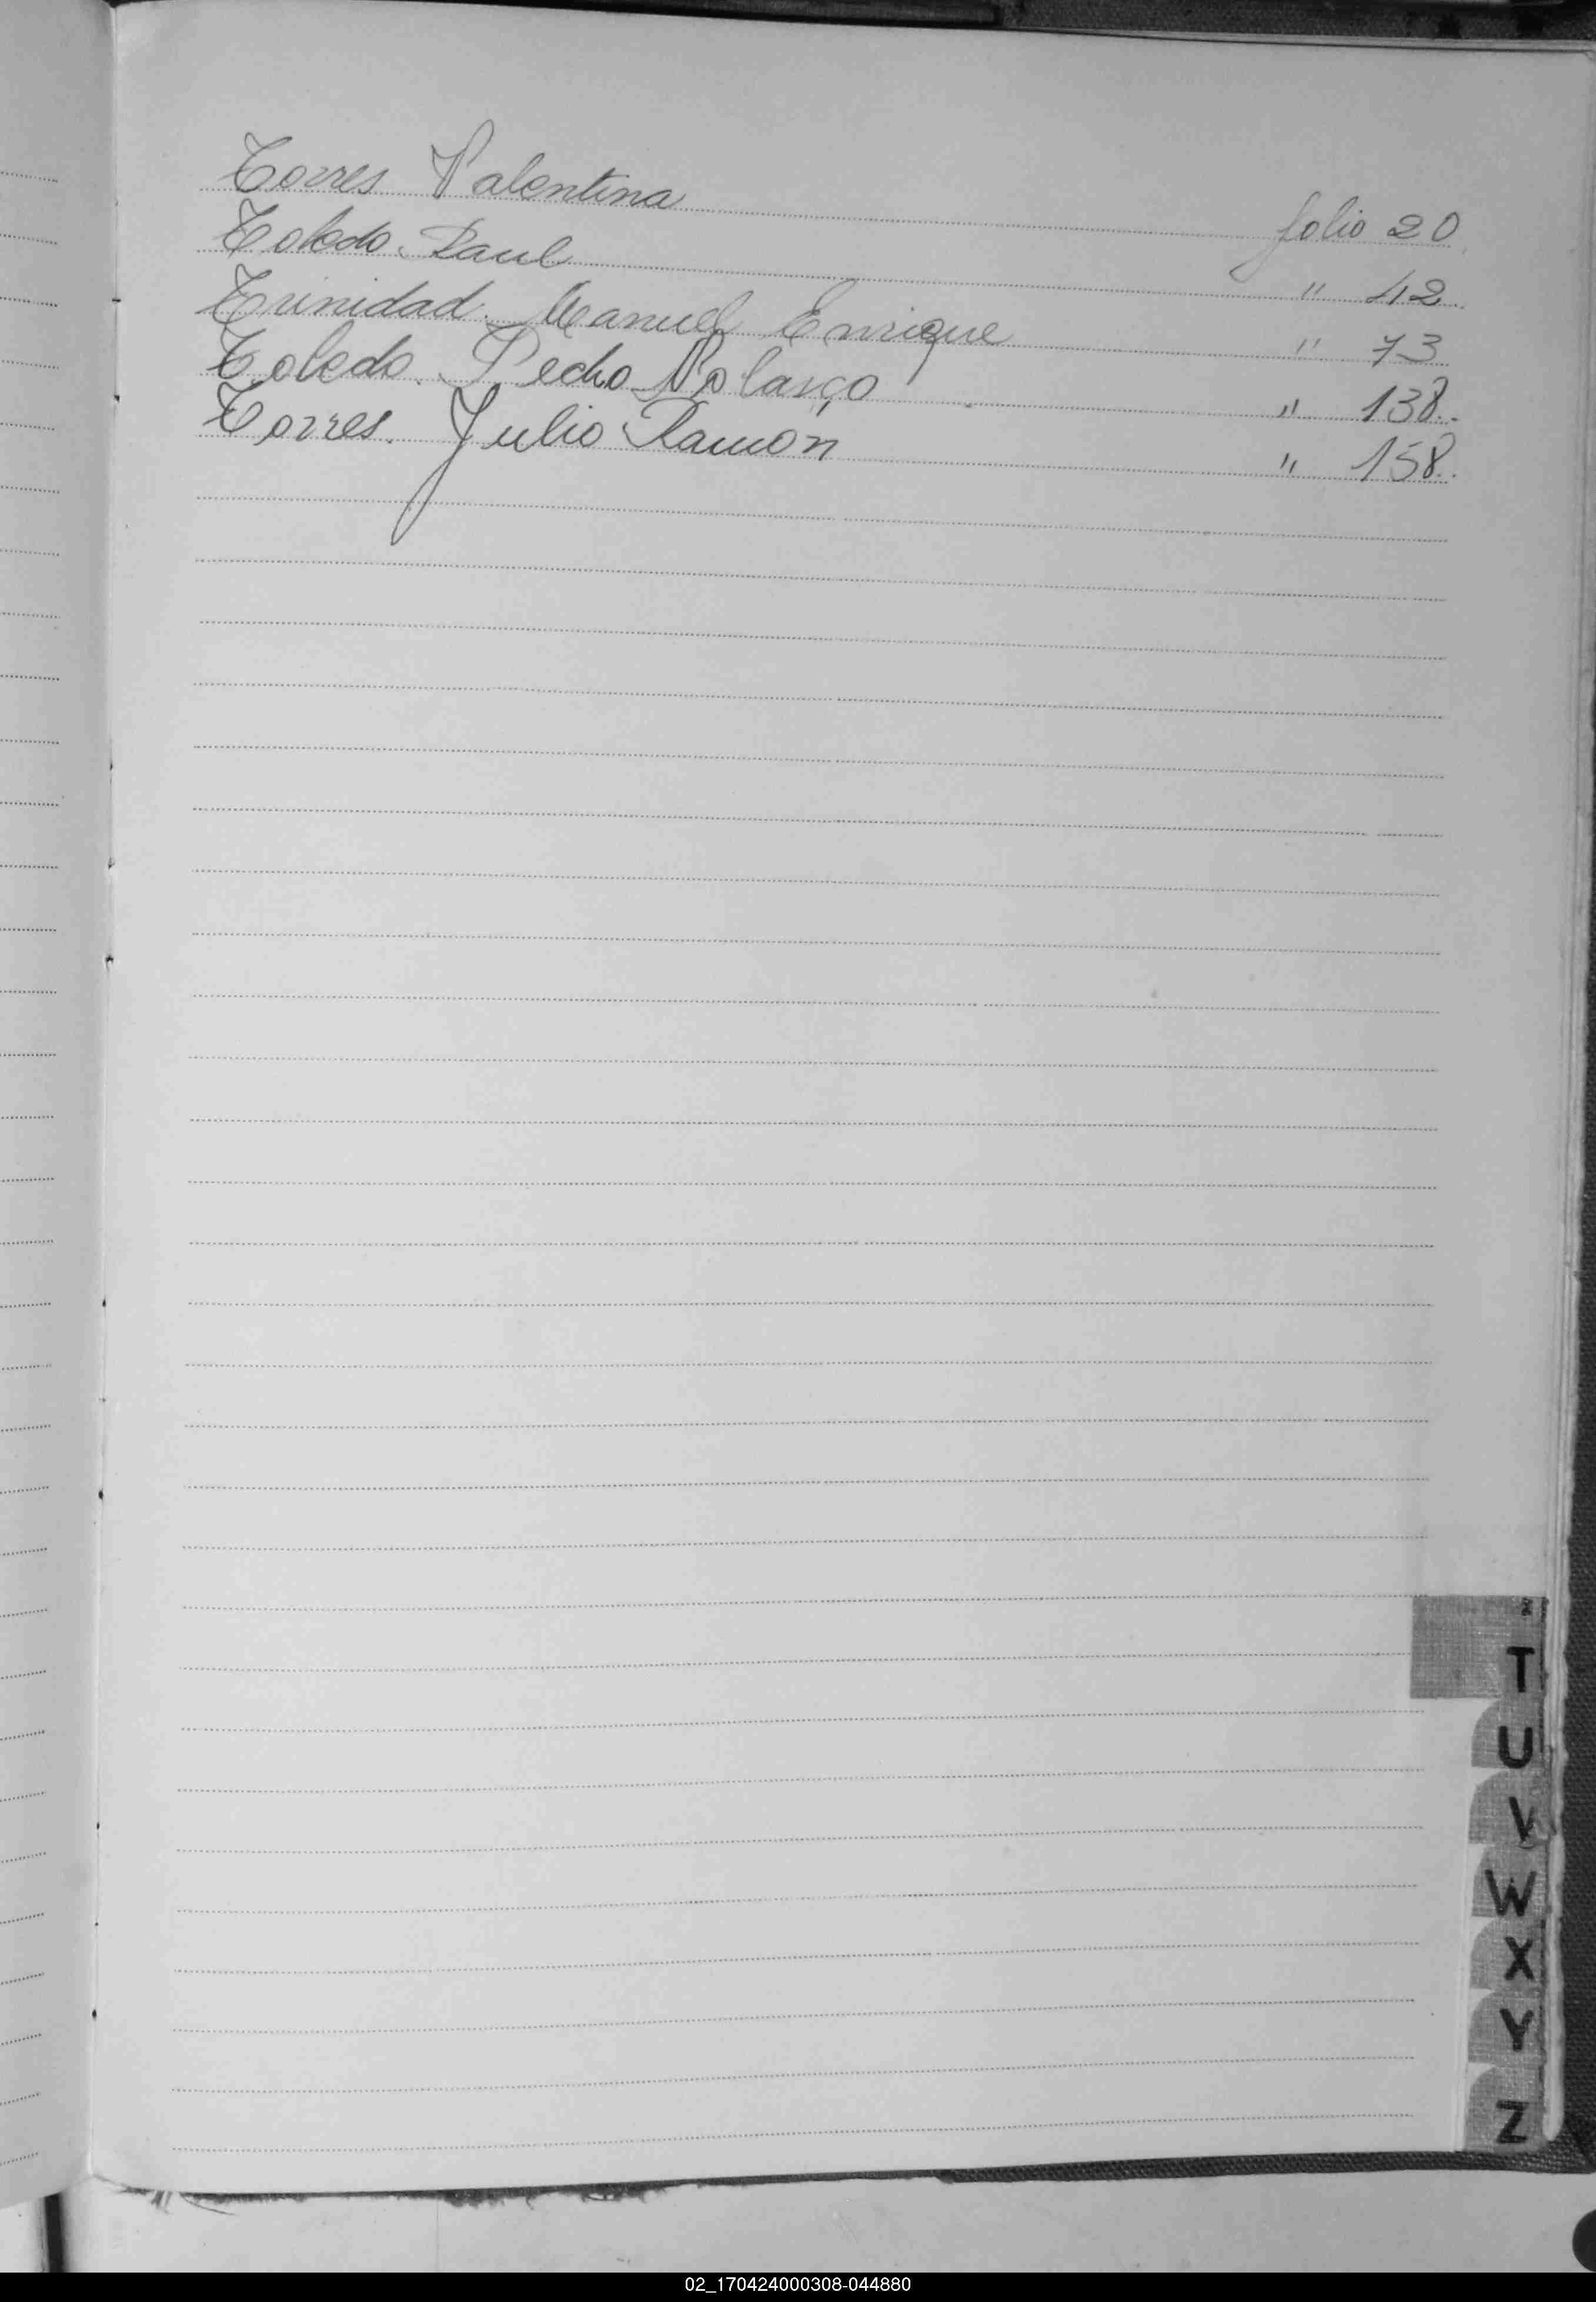 Torres Valentina folio 20
Toledo Raul " 42
Trinidad. Manuel Enrique " 73
Toledo. Pedro Nolasco " 138.
Torres. Julio Ramón " 158.
T
U
V
W
X
Y
Z
02_170424000308-044880